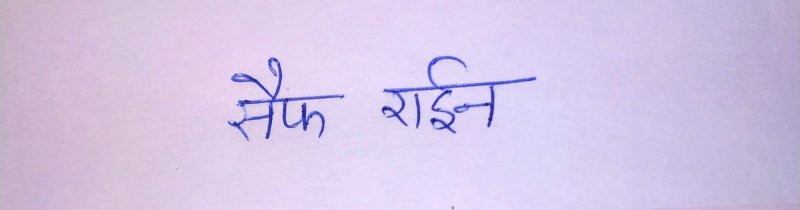 सैफ राईन